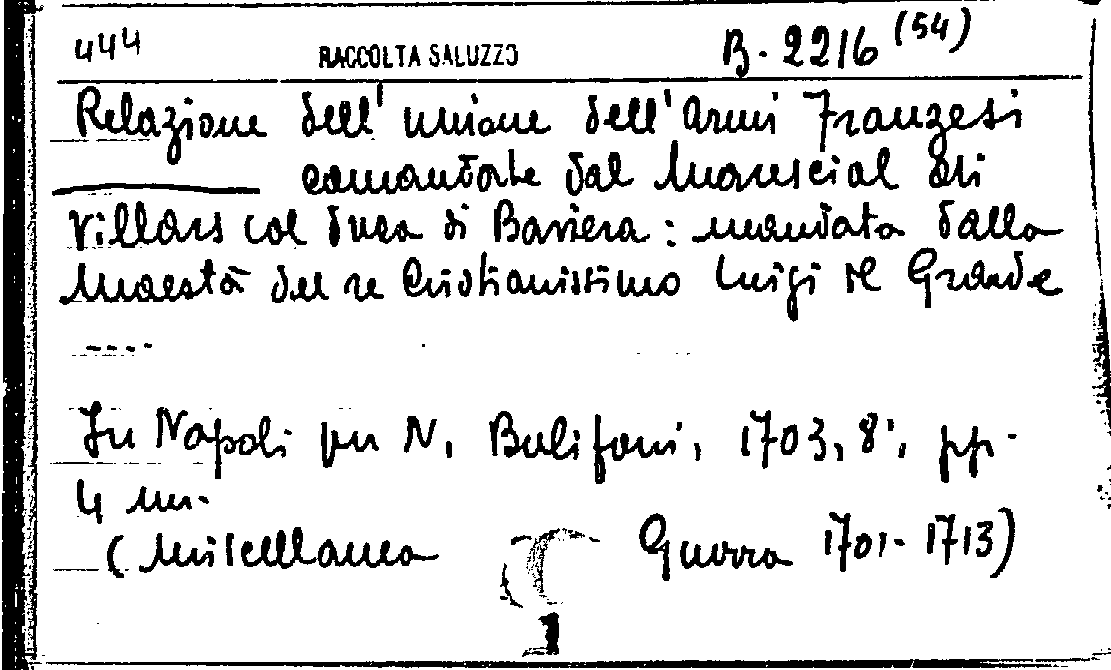 444 RACCOLTA SALUZZO B. 2216 (54)
Relazione dell'unione dell'Armi Franzesi
comandate dal Marescial di
Villars col Duca di Baviera: mandata dalla
Maestà del re Cristianissimo Luigi il Grande
....
In Napoli per N. Bulifoni, 1703, 8°, pp.
4 nn.
(Miscellanea Guerra 1701-1713)